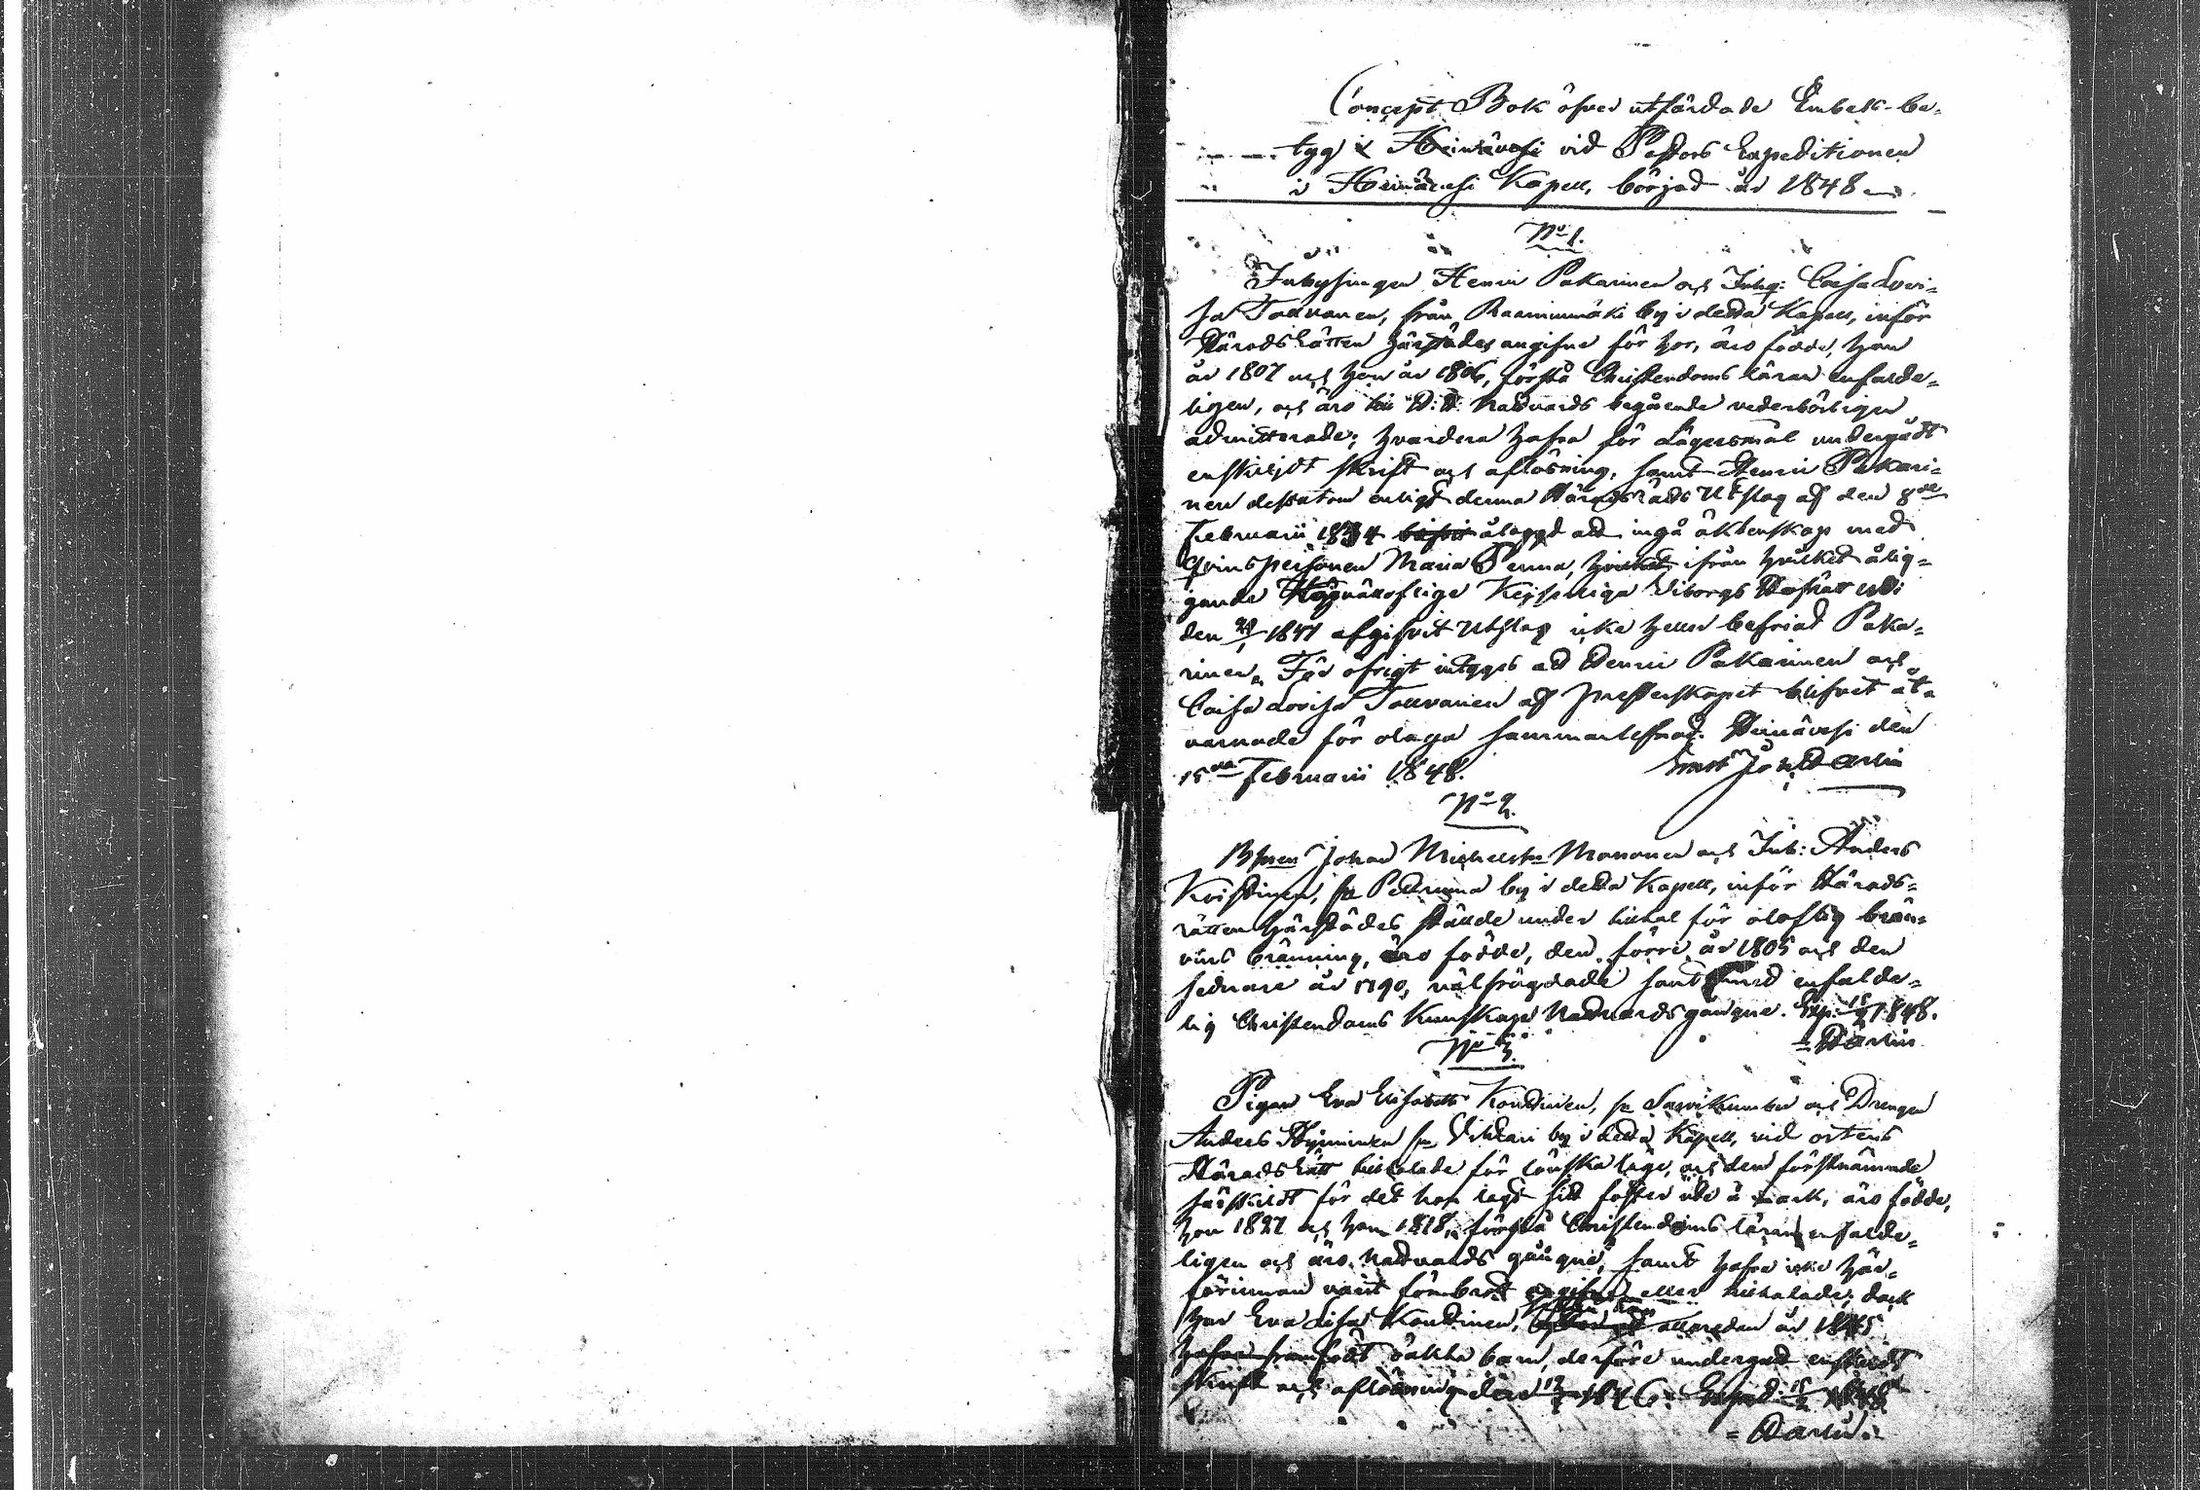 Concept Bok öfver utfärdade Embets-be-
tyg i Heinävesi vid Pastors Expeditionen
i Heinävesi Kapell, börjad år 1848
No 1.
Inhysingen Henric Pakarinen och Inhq: Caisa Lovi-
sa Tauvanen, från Raaminmäki by i detta Kapell, inför
HäradsRätten härstädes angifne för hor, äro födde, han
år 1807 och hon år 1806, förstå Christendoms läran enfalde-
ligen, och äro till H: H. Nattvards begående vederbörligen
admitterade; hvardera hafva för Lägersmål undergått
enskyldt skrift och aflösning, samt Henric Pakari-
nen dessutom enligt denna HäradsRätts Utslag af den 8de
Februarii 1834 ålaggd att ingå äktenskap med
Qvinspersonen Maria Penna, ifrån hvilket ålig-
gande Kejserliga Viborgs Hofrätt uti
den 1847 afgifvit Utslag icke heller befriat Paka-
rinen. För öfrigt intygas att Henric Pakarinen och
Caisa Lovisa Tauvanen af presterskapet blifvet åt-
varnade för olaga sammanlefnad. Heinävesi den
15de Februarii 1848.
No 2.
Bonden Johan Michelsson Manonen och Inh: Anders
Kristinen, fr Petruma by i detta Kapell, inför Härads-
rätten härstädes stände under tilltal för oloflig brän-
vins bränning, äro födde, den förre år 1805 och den
sednare år 1790, välfrägdade samt med enfalde-
lig Christendoms kunskap Nattvardsgångne. Exp: 15/2 1848.
No 3.
Pigan Eva Elisabeth Kontinen, fr Sarvikumbu och Drengen
Anders Hyninen fr Vihtari by i detta Kapell, vid ortens
HäradsRätt tilltalade för lönska läge, och den förstnämnde
särskildt för det hon lagt sitt foster ute å mark, äro födde,
hon 1827 och han 1818, förstå Christendoms läran enfalde-
ligen och äro Nattvards gångne, samt hafva icke här-
förinnan varit för brott angifne eller tilltalade; dock
har Eva Lisa Kontinen, allaredan år 1845
framfödt oäkta barn, derföre undergått enskildt
skrift och aflösning den 1846. Exped: 15/2 1848